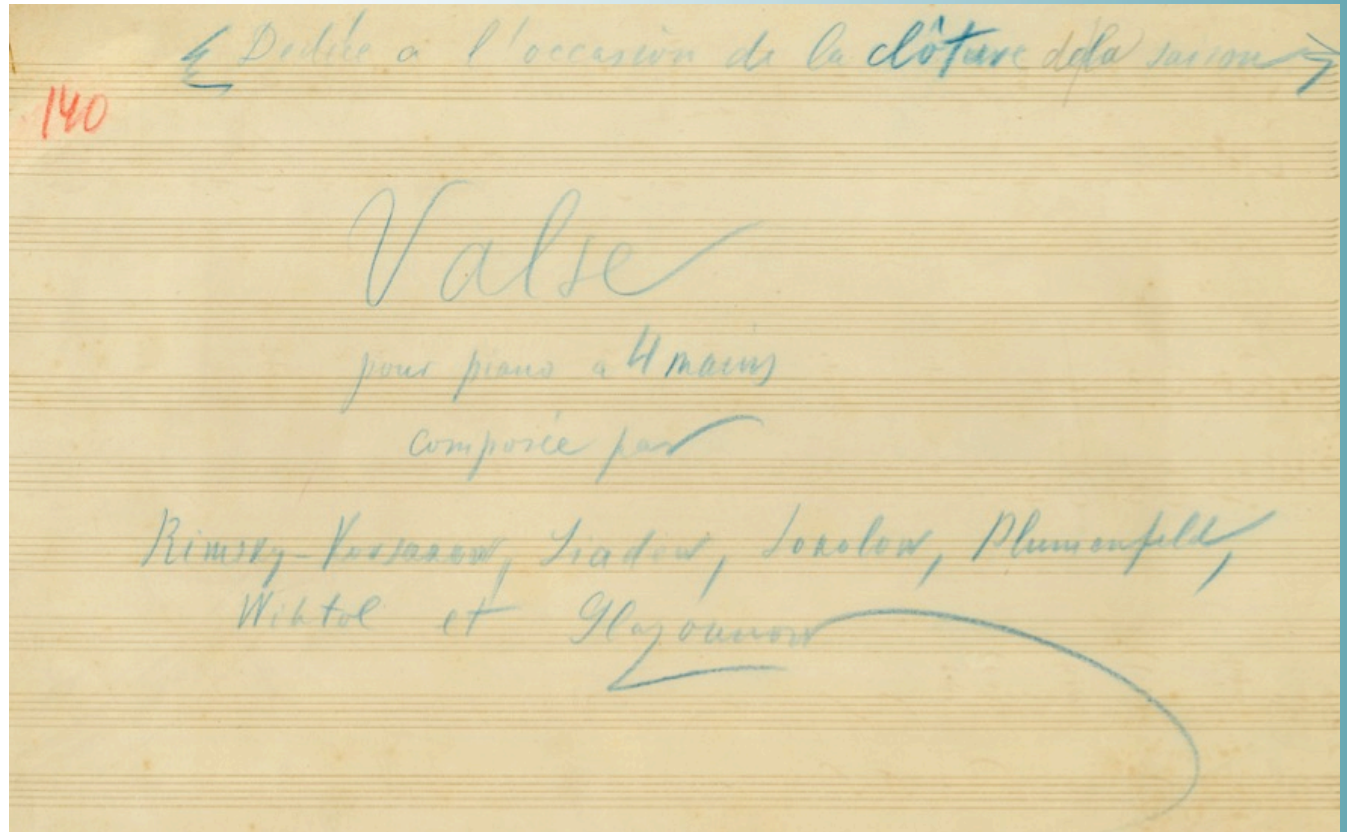 Dediée a l'occasion de la clôture de la saison
140
Valse
pour piano a 4 mains
composée par
Rimsky-Korsakow, Liadow, Sokolow, Blumenfeld,
Wihtol et Glazounow